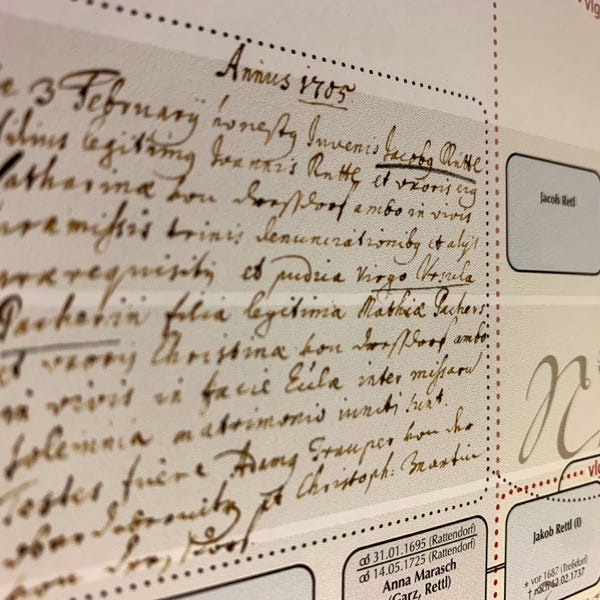 Annus 1705
3 February honestg Juvenis Jacobg Rittl
filius legitimg Joannis Rittl et uxoris eig
Catharinæ von Dresßdorf ambo in vivis
præmissis trinis denunciationibg et alijs
prærequisitis et pudica Virgo Ursula
Pacherin filia legitima Mathiæ Pachers
et uxoris Christinæ von Dresßdorf ambo
in vivis in facie Eúla inter missarū
solemnia matrimonio iuncti sunt.
Testes fuere Adamg Trauper von der
et Christoph: Martin
von
Jacob Retl
vlg
vlg
Jakob Rettl (I)
* vor 1687 (Treßdorf)
† nach 12.02.1737
⚭ 31.01.1695 (Rattendorf)
⚭ 14.05.1725 (Rattendorf)
Anna Marasch
(Garz, Rettl)